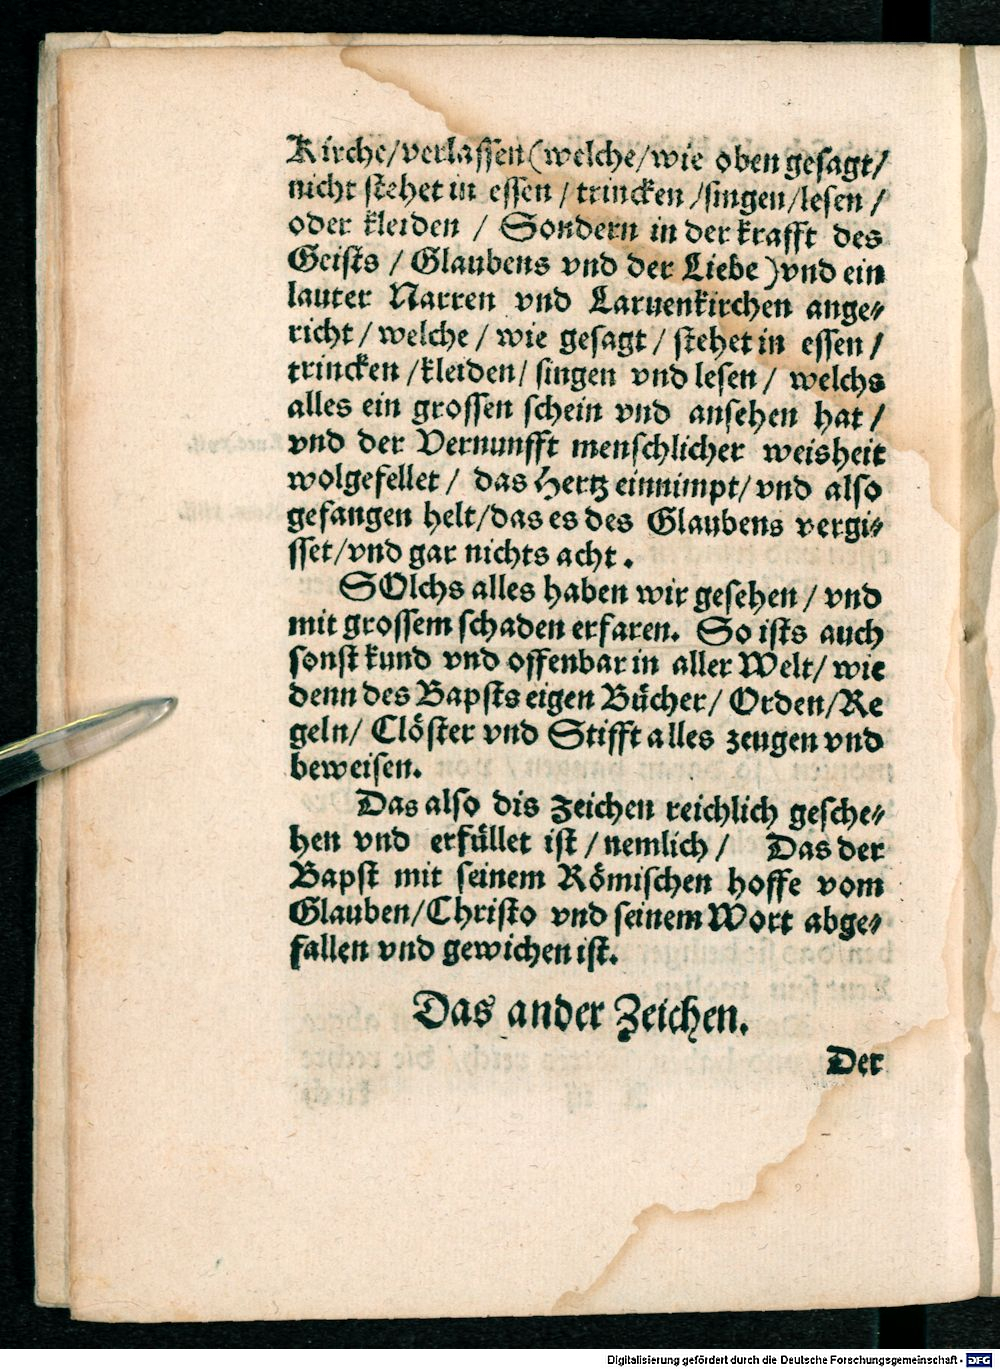 Kirche/verlassen (welche/wie oben gesagt/
nicht stehet in essen / trincken /singen/lesen /
oder kleiden / Sondern in der krafft des
Geists / Glaubens vnd der Liebe) vnd ein
lauter Narren vnd Laruenkirchen ange⸗
richt / welche / wie gesagt / stehet in essen /
trincken /kleiden/ singen vnd lesen / welchs
alles ein grossen schein vnd ansehen hat /
vnd der Vernunfft menschlicher weisheit
wolgefellet / das Hertz einnimpt/ vnd also
gefangen helt/das es des Glaubens vergi⸗
sset/vnd gar nichts acht.
SOlchs alles haben wir gesehen / vnd
mit grossem schaden erfaren. So ists auch
sonst kund vnd offenbar in aller Welt/ wie
denn des Bapsts eigen Bücher/ Orden/Re
geln/ Clöster vnd Stifft alles zeugen vnd
beweisen.
Das also dis Zeichen reichlich gesche⸗
hen vnd erfüllet ist / nemlich / Das der
Bapst mit seinem Römischen hoffe vom
Glauben/Christo vnd seinem Wort abge⸗
fallen vnd gewichen ist.
Das ander Zeichen.
Der
Digitalisierung gefördert durch die Deutsche Forschungsgemeinschaft - DFG